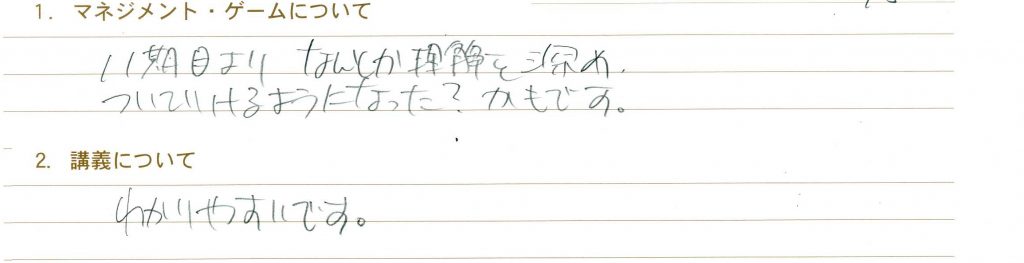 1. マネジメント・ゲームについて
11期目より なんとか理解を深め、
ついていけるようになった？かもです。
2. 講義について
わかりやすいです。